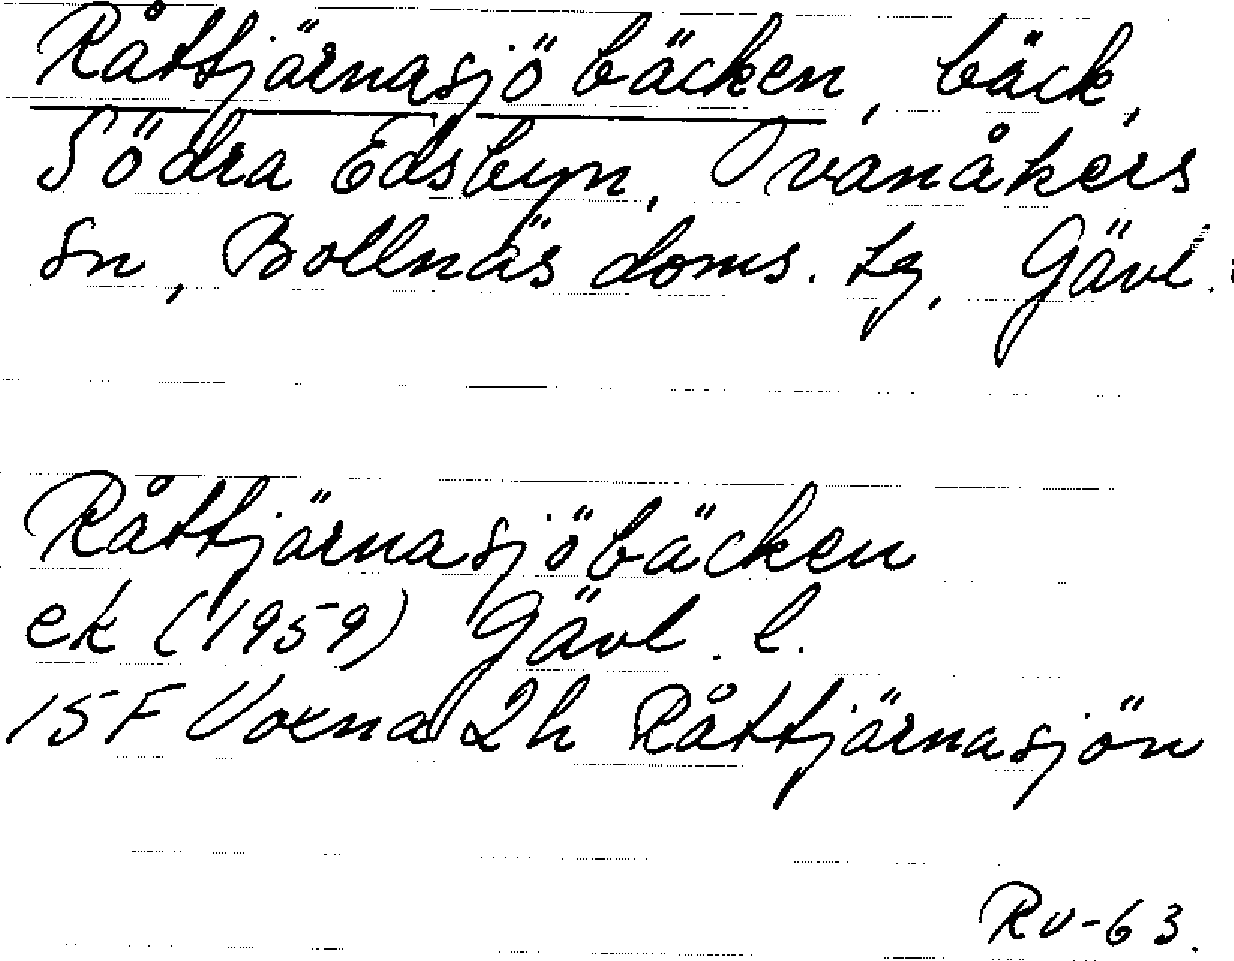 Råttjärnasjöbäcken, bäck,
Södra Edsbyn, Ovanåkers
sn, Bollnäs doms. tg, Gävl.
Råttjärnasjöbäcken
ek (1959) Gävl. l.
15F Voxna 2h Råttjärnasjön
Rv-63.